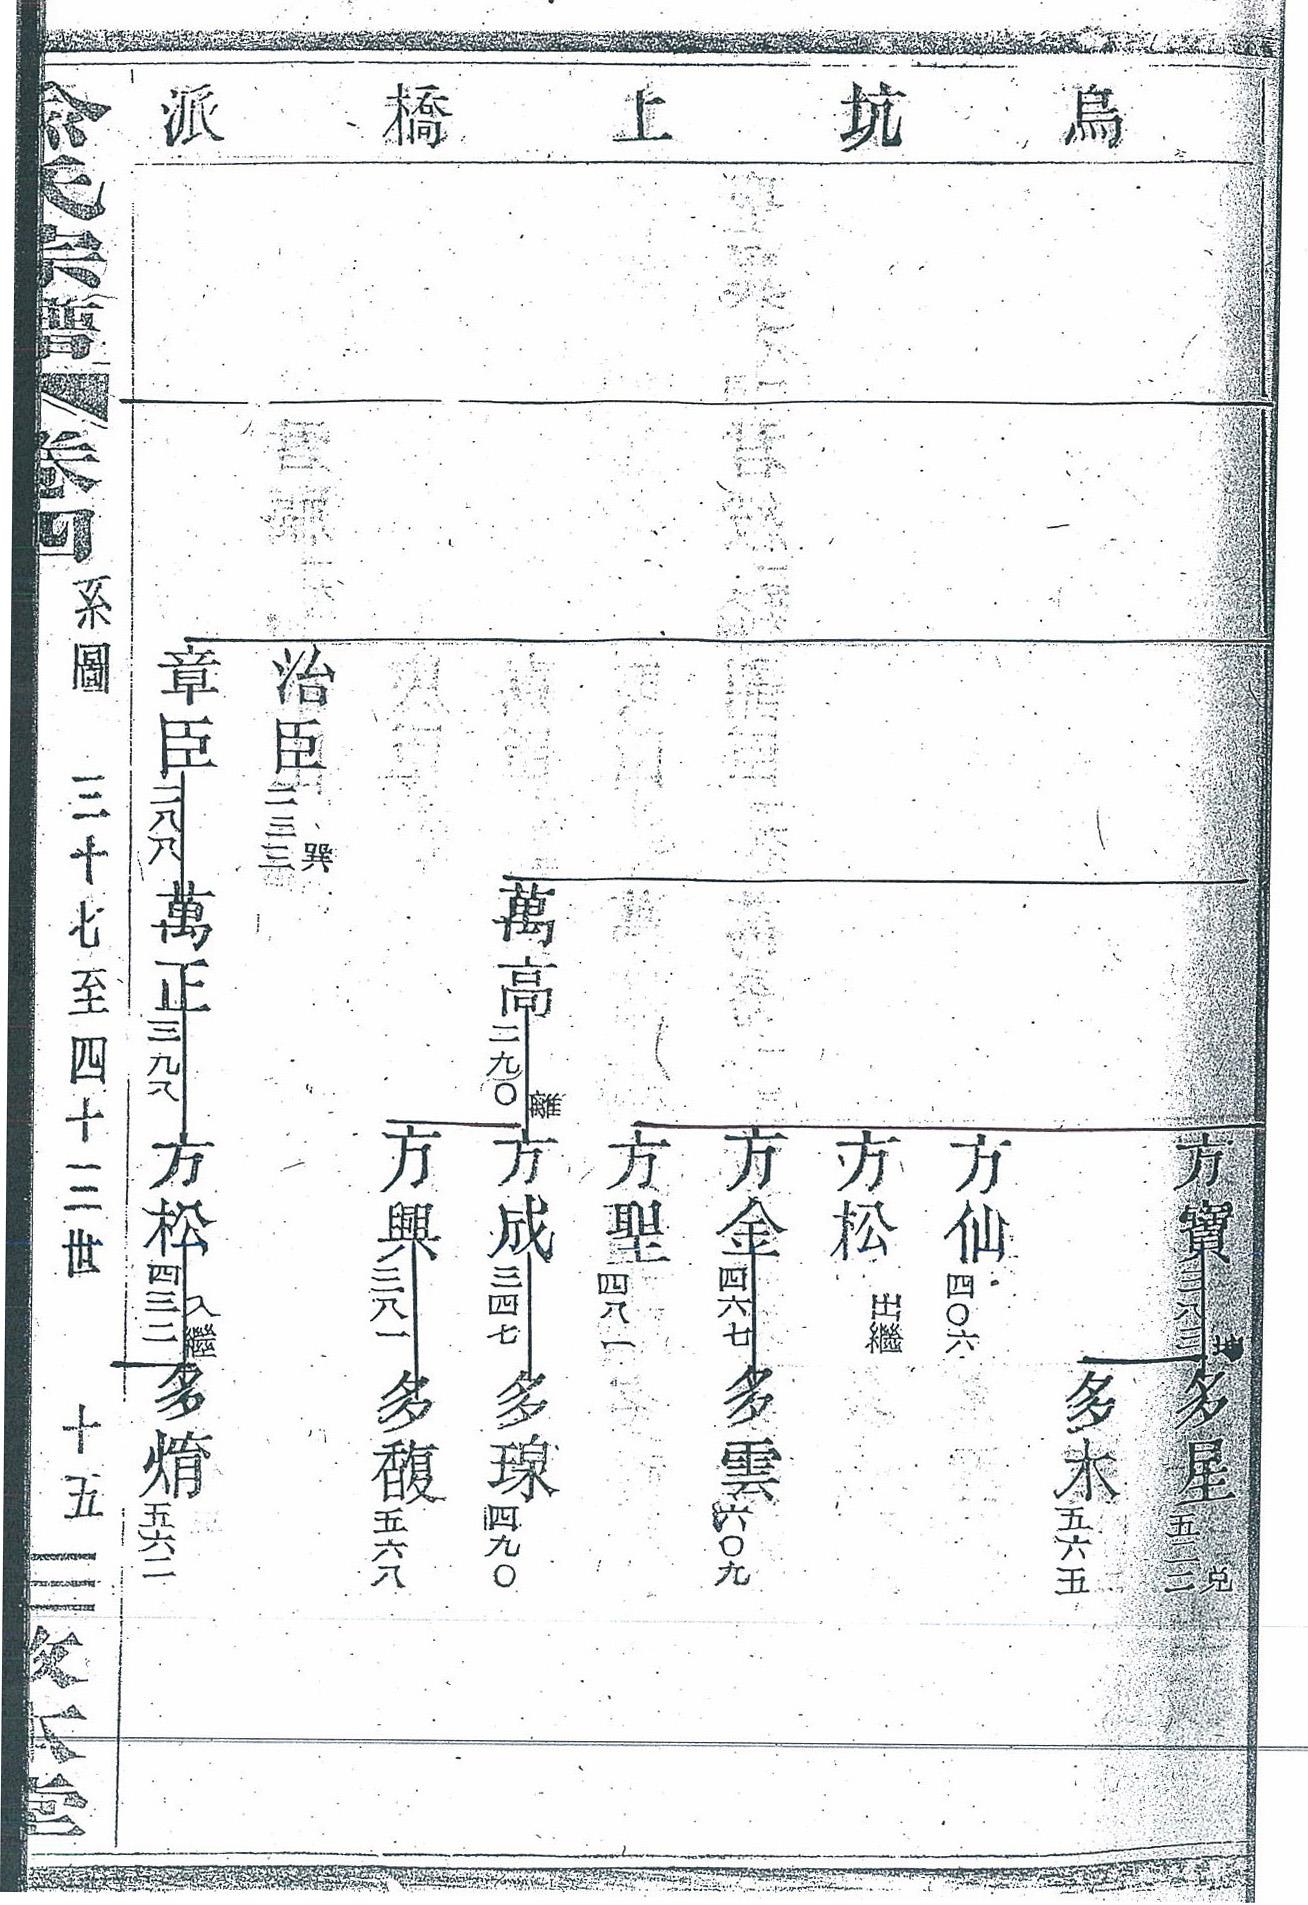 烏坑上橋派
方寶 三八三 坤
多星 五二二 兌
多木 五六五
方仙 四〇六
方松 出繼
方金 四六七
多雲 六〇九
方聖 四八一
萬高 二九〇 離
方成 三四七
多瑔 四九〇
方興 三八一
多馥 五六八
治臣 二三三 巽
章臣 二八八
萬正 三九八
方松 四三二 入繼
多焴 五六二
宗譜 卷四 系圖 三十七至四十二世 十五